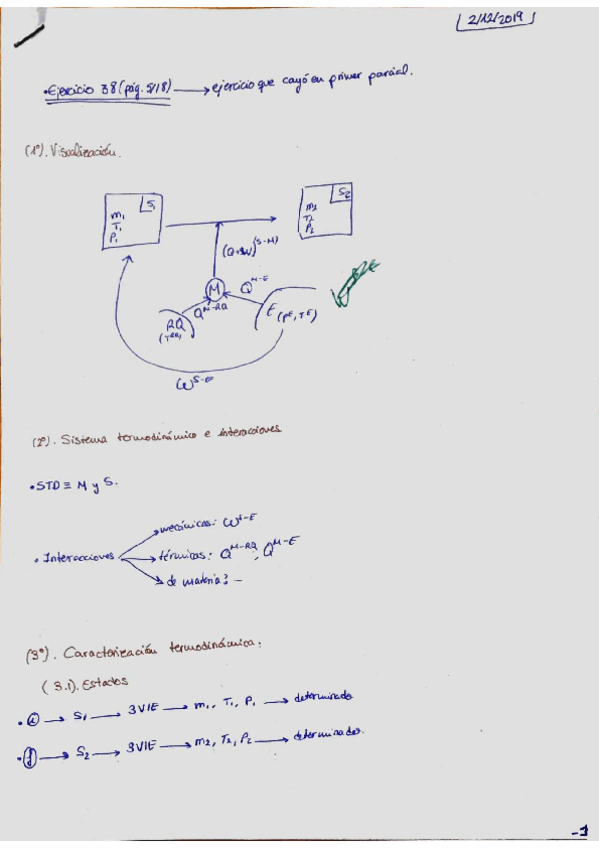 2/12/2019
• Ejercicio 38 (pág. 5/18) → ejercicio que cayó en primer parcial.
(1º). Visualización.
S₁
m₁
T₁
P₁
S₂
m₂
T₂
P₂
(Q+W)^(S-M)
M
Q^M-E
Q^M-RQ
RQ
(T^RQ)
E (P^E, T^E)
W^S-E
(2º). Sistema termodinámico e interacciones
• STD ≡ M y S.
→ mecánicas: W^+-E
• Interacciones → térmicas: Q^M-RQ; Q^M-E
→ de materia: –
(3º). Caracterización termodinámica.
(3.1). Estados
• i → S₁ → 3VIE → m₁, T₁, P₁ → determinado
• f → S₂ → 3VIE → m₂, T₂, P₂ → determinado.
-1